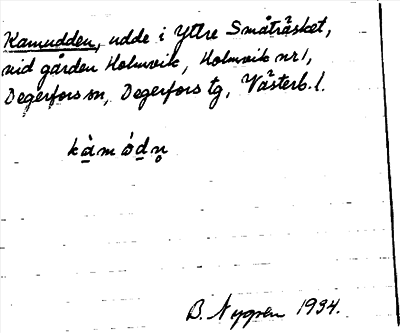 Kamudden, udde i Yttre Småträsket,
vid gården Holmvik, Holmvik nr 1,
Degerfors sn, Degerfors tg, Västerb. l.
kà̱móḏn̥
B. Nygren 1934.